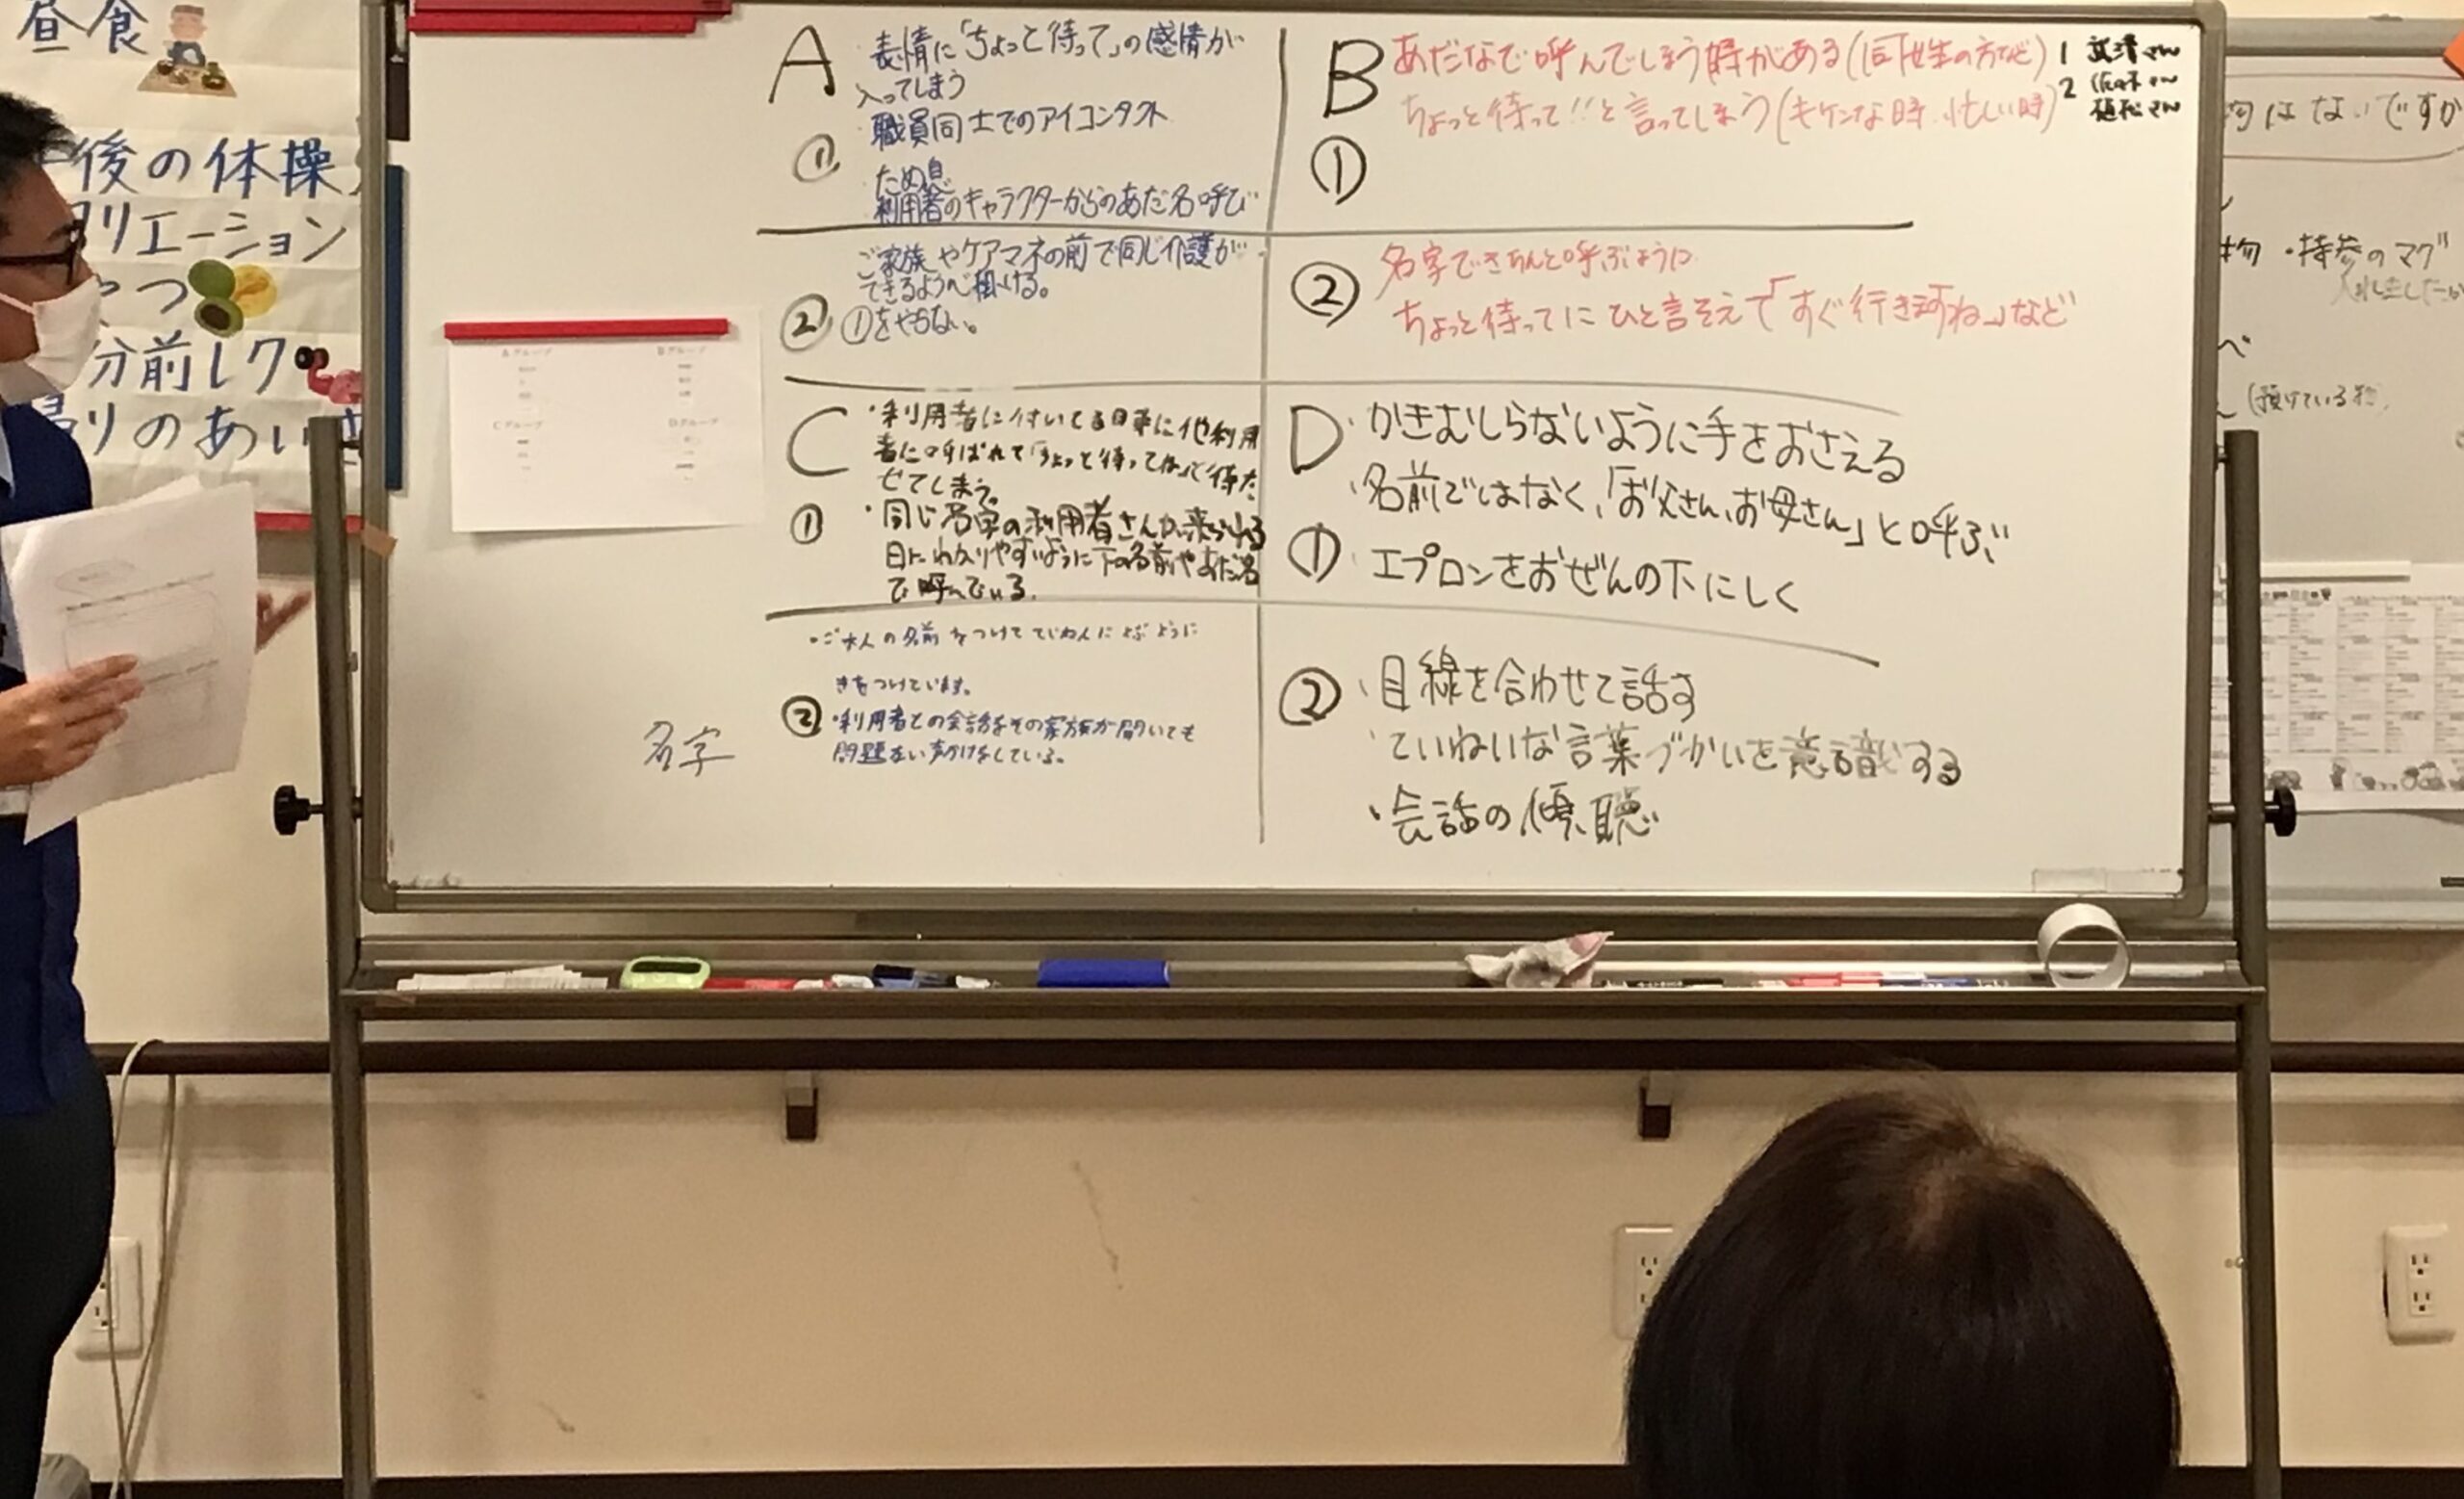 昼食
後の体操
リエーション
やつ
分前レク
帰りのあいさ
A
表情に「ちょっと待って」の感情が
入ってしまう
職員同士でのアイコンタクト
①
ため息
利用者のキャラクターからのあだ名呼び
ご家族やケアマネの前で同じ介護が
できるように掛ける。
② ①をやらない。
B
あだなで呼んでしまう時がある(同姓の方など)
ちょっと待って!!と言ってしまう(キケンな時、忙しい時)
①
1
2
② 名字できちんと呼ぶように
ちょっと待ってにひと言そえて「すぐ行きますね」など
Aグループ
Bグループ
Cグループ
Dグループ
C
・利用者に付いてる時に他利用
者に呼ばれて「ちょっと待ってね」で待た
せてしまう。
①
・同じ名字の利用者さんが来られる
日にわかりやすいように下の名前やあだ名
で呼んでいる。
・ご本人の名前をつけてていねんによぶように
きをつけています。
②
・利用者との会話をその家族が聞いても
問題ない声かけをしている。
名字
D
・かきむしらないように手をおさえる
・名前ではなく、「お父さん、お母さん」と呼ぶ
①
・エプロンをおぜんの下にしく
②
・目線を合わせて話す
・ていねいな言葉づかいを意識する
・会話の傾聴
物はないですか
物・持参のマグ
(預けている物